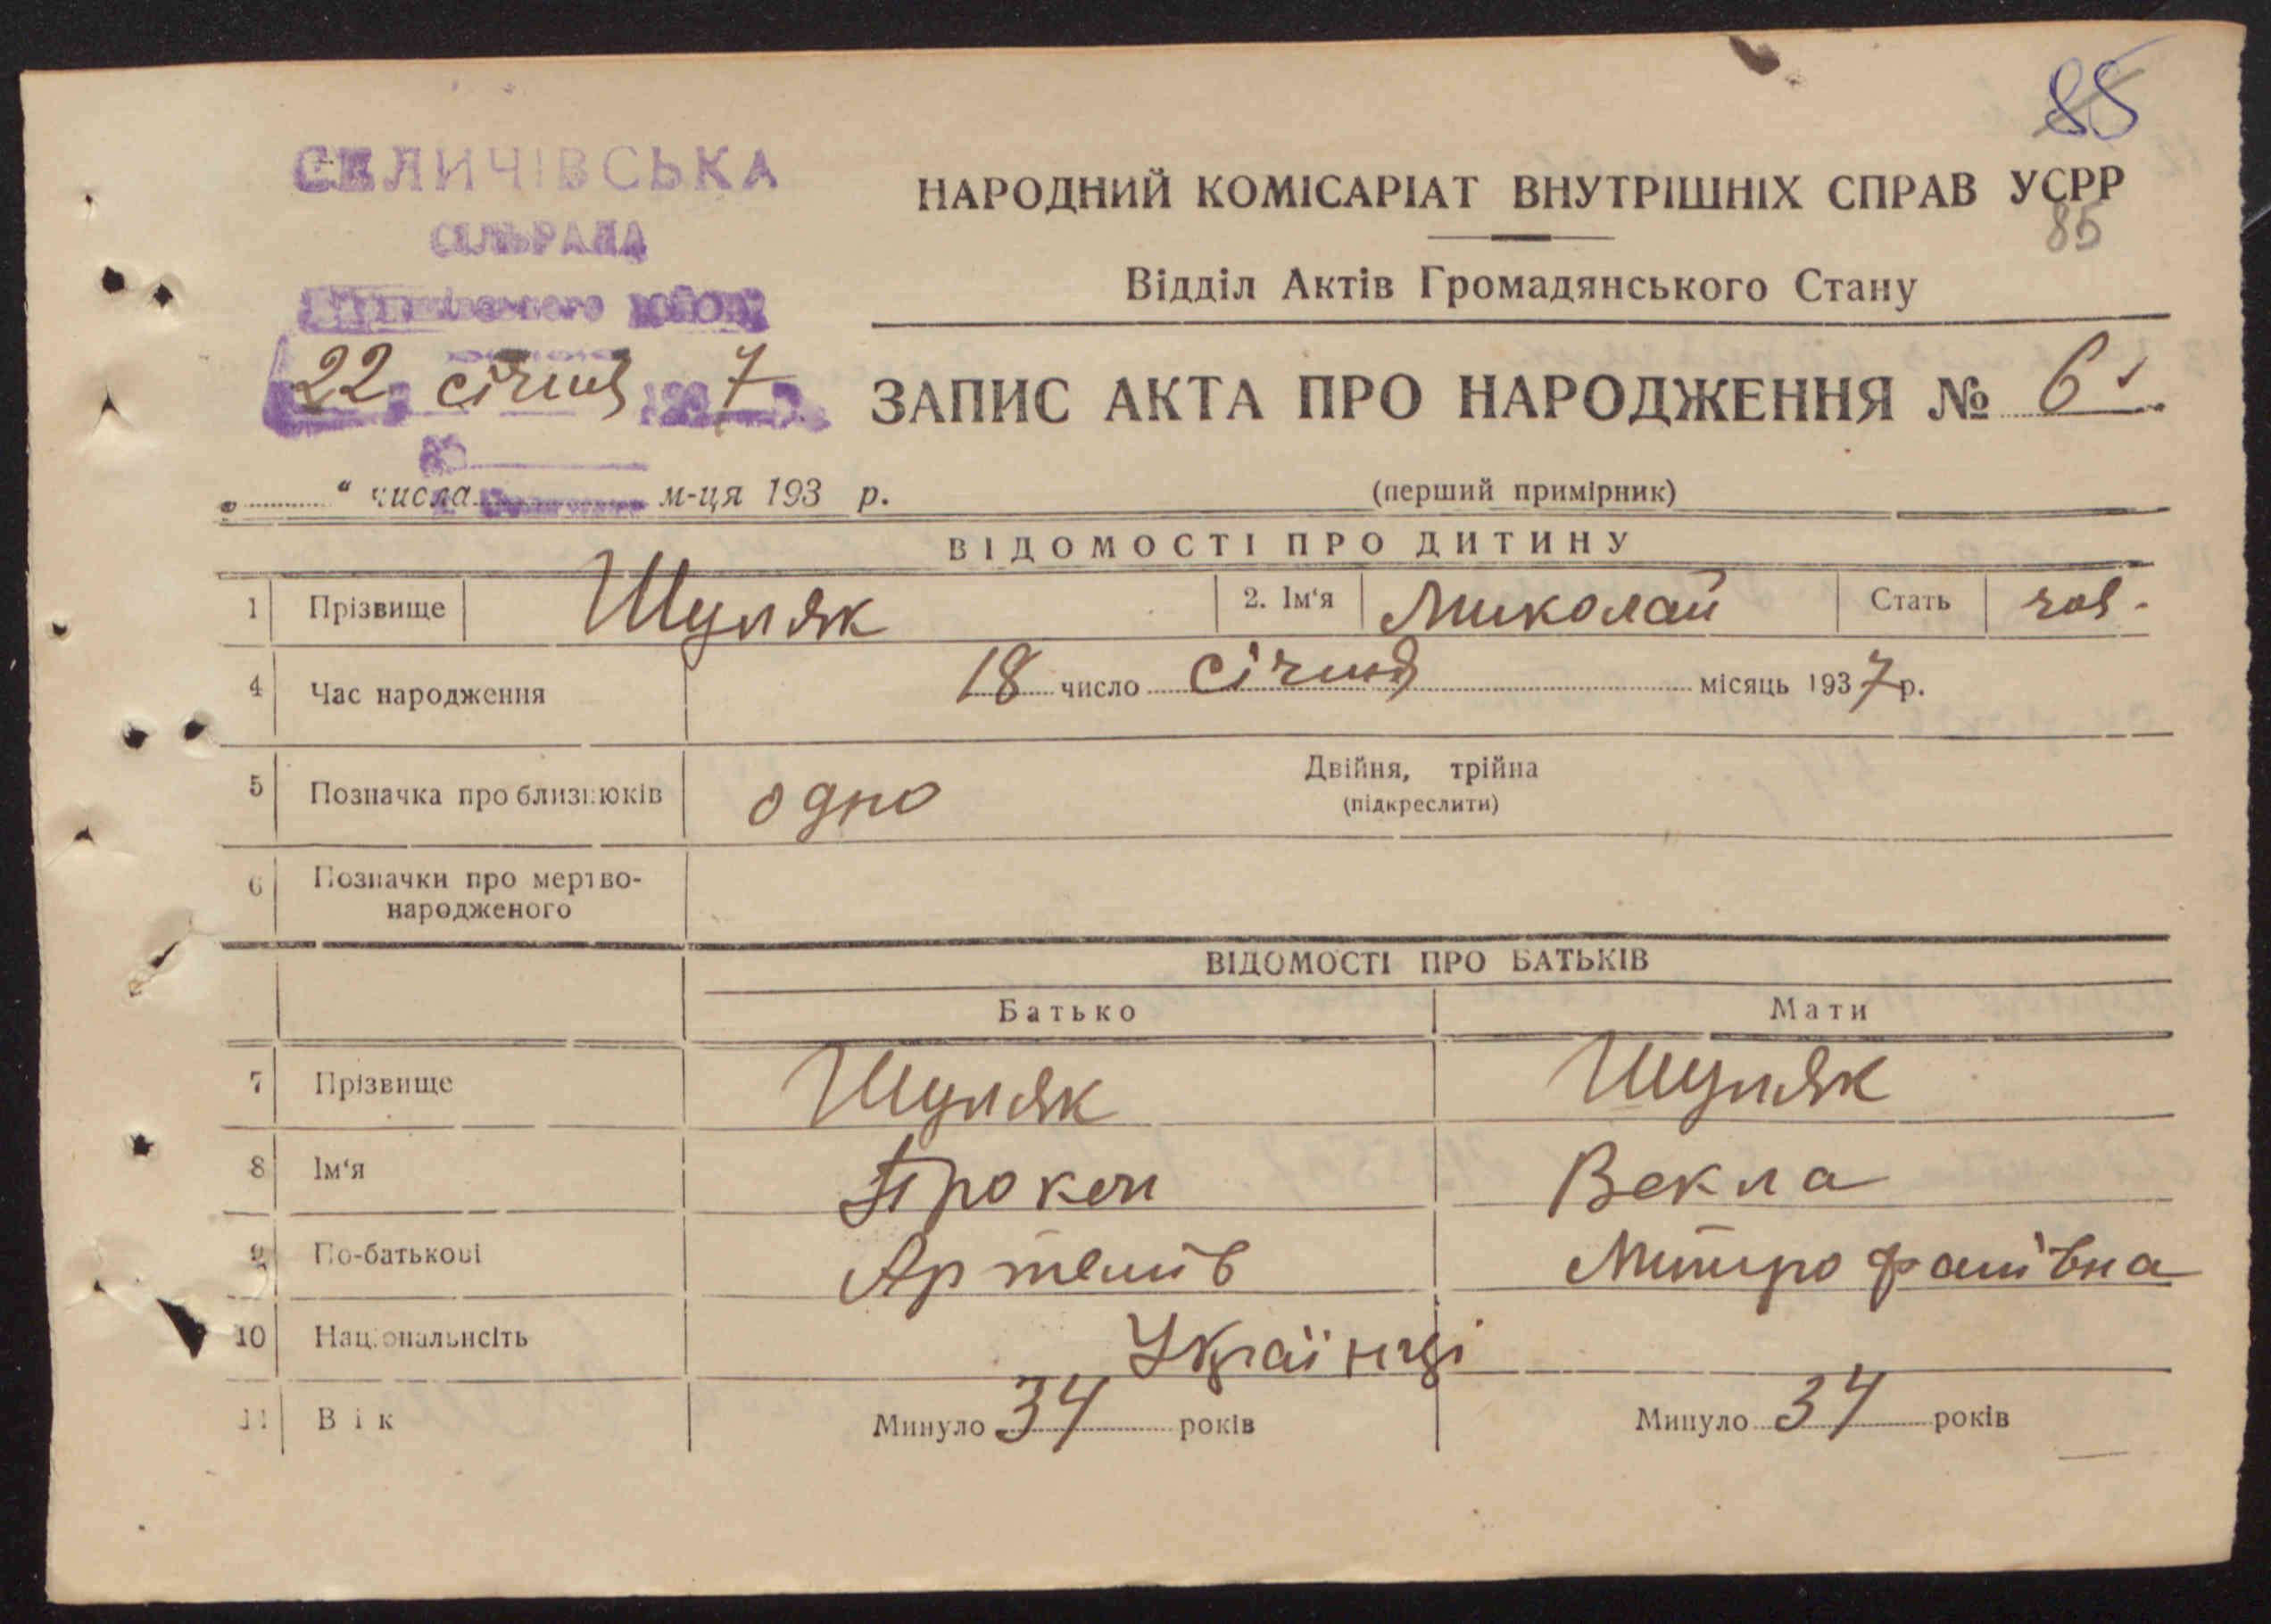 85
СЕЛИЧІВСЬКА
СІЛЬРАДА
22 січня 1937
НАРОДНИЙ КОМІСАРІАТ ВНУТРІШНІХ СПРАВ УСРР
85
Відділ Актів Громадянського Стану
ЗАПИС АКТА ПРО НАРОДЖЕННЯ № 6
„ “ числа м-ця 193 р.
(перший примірник)
ВІДОМОСТІ ПРО ДИТИНУ
1 Прізвище Шуляк 2. Ім‘я Миколай Стать чов.
4 Час народження 18 число січня місяць 1937 р.
5 Позначка про близнюків одно Двійня, трійна
(підкреслити)
6 Позначки про мертво-
народженого
ВІДОМОСТІ ПРО БАТЬКІВ
Батько Мати
7 Прізвище Шуляк Шуляк
8 Ім‘я Прокоп Векла
9 По-батькові Артемів Митрофанівна
10 Національнсіть Українці
11 Вік Минуло 34 років Минуло 34 років